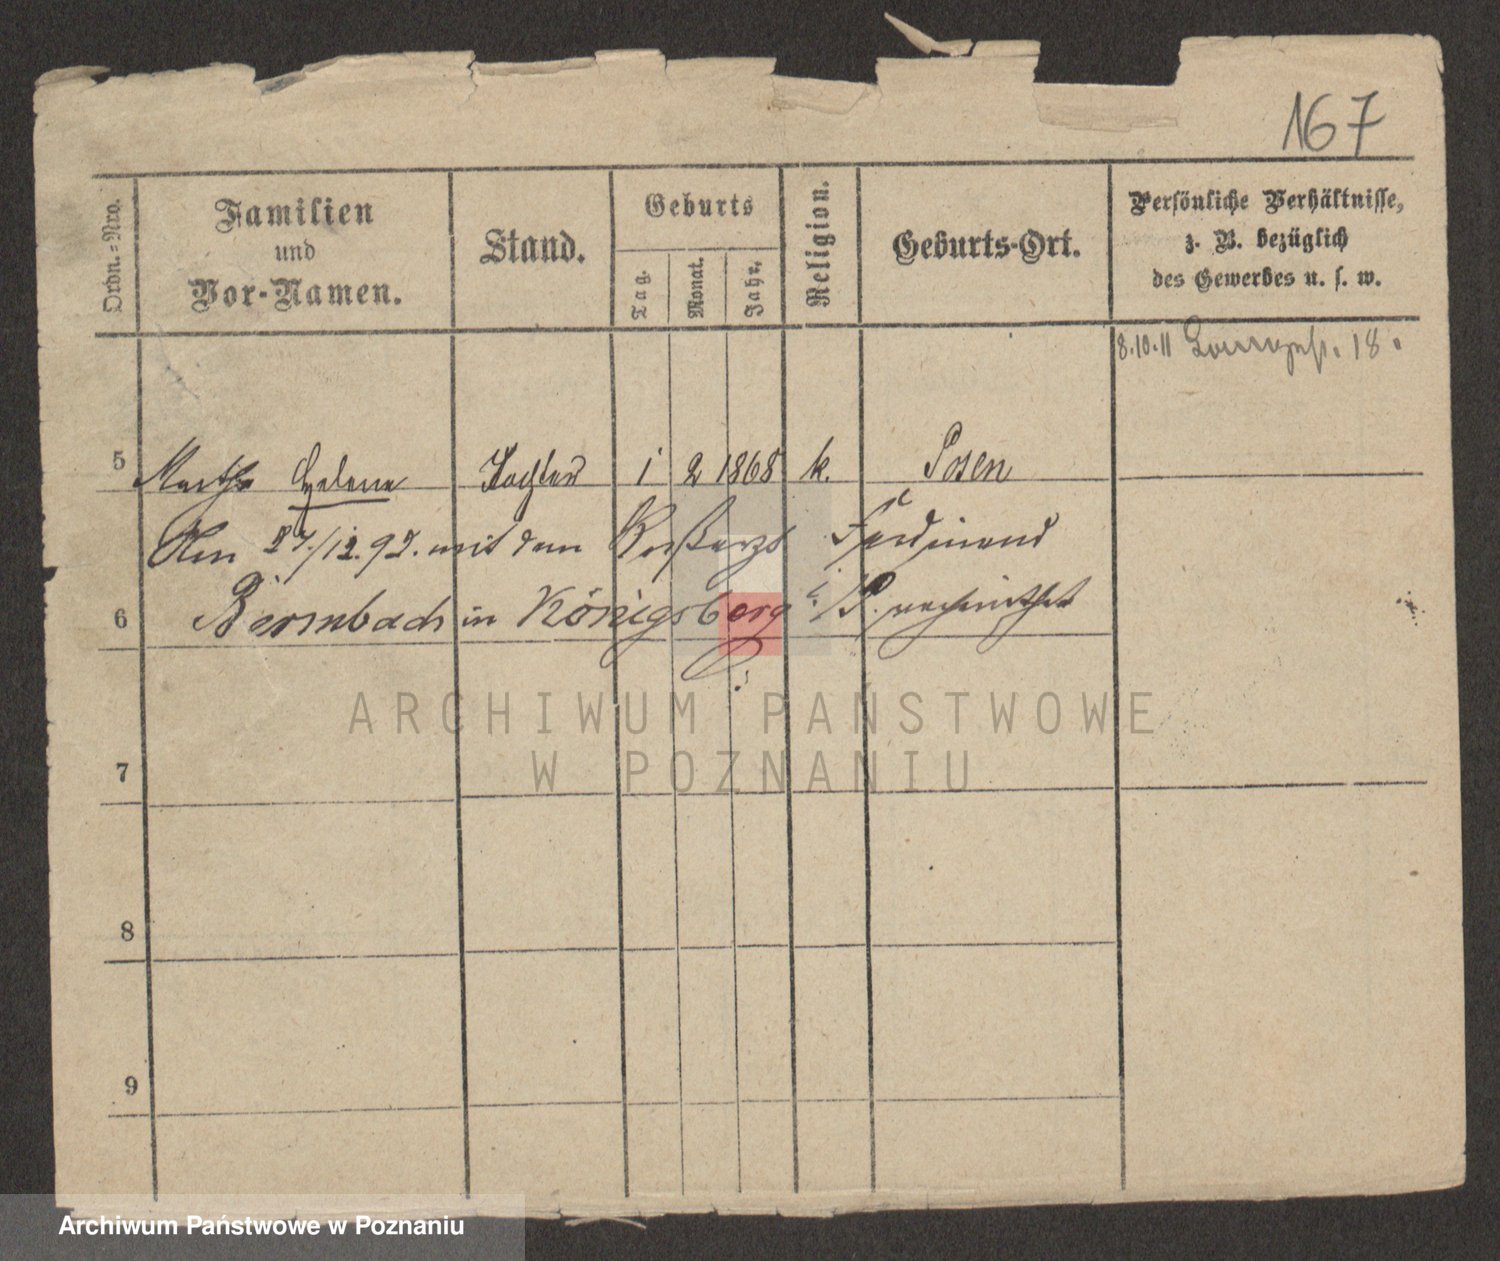 167
Ordn.-Nro.
Familien
und
Vor-Namen.
Stand.
Geburts
Tag.
Monat.
Jahr.
Religion.
Geburts-Ort.
Persönliche Verhältnisse,
z. B. bezüglich
des Gewerbes u. s. w.
8.10.11 18.
5 Martha Helene Tochter 1 2 1868 k. Posen
Am 27./12.92. mit dem Roßarzt Ferdinand
6 Bermbach in Königsberg i/P. verheirathet
7
8
9
ARCHIWUM PAŃSTWOWE
W POZNANIU
Archiwum Państwowe w Poznaniu